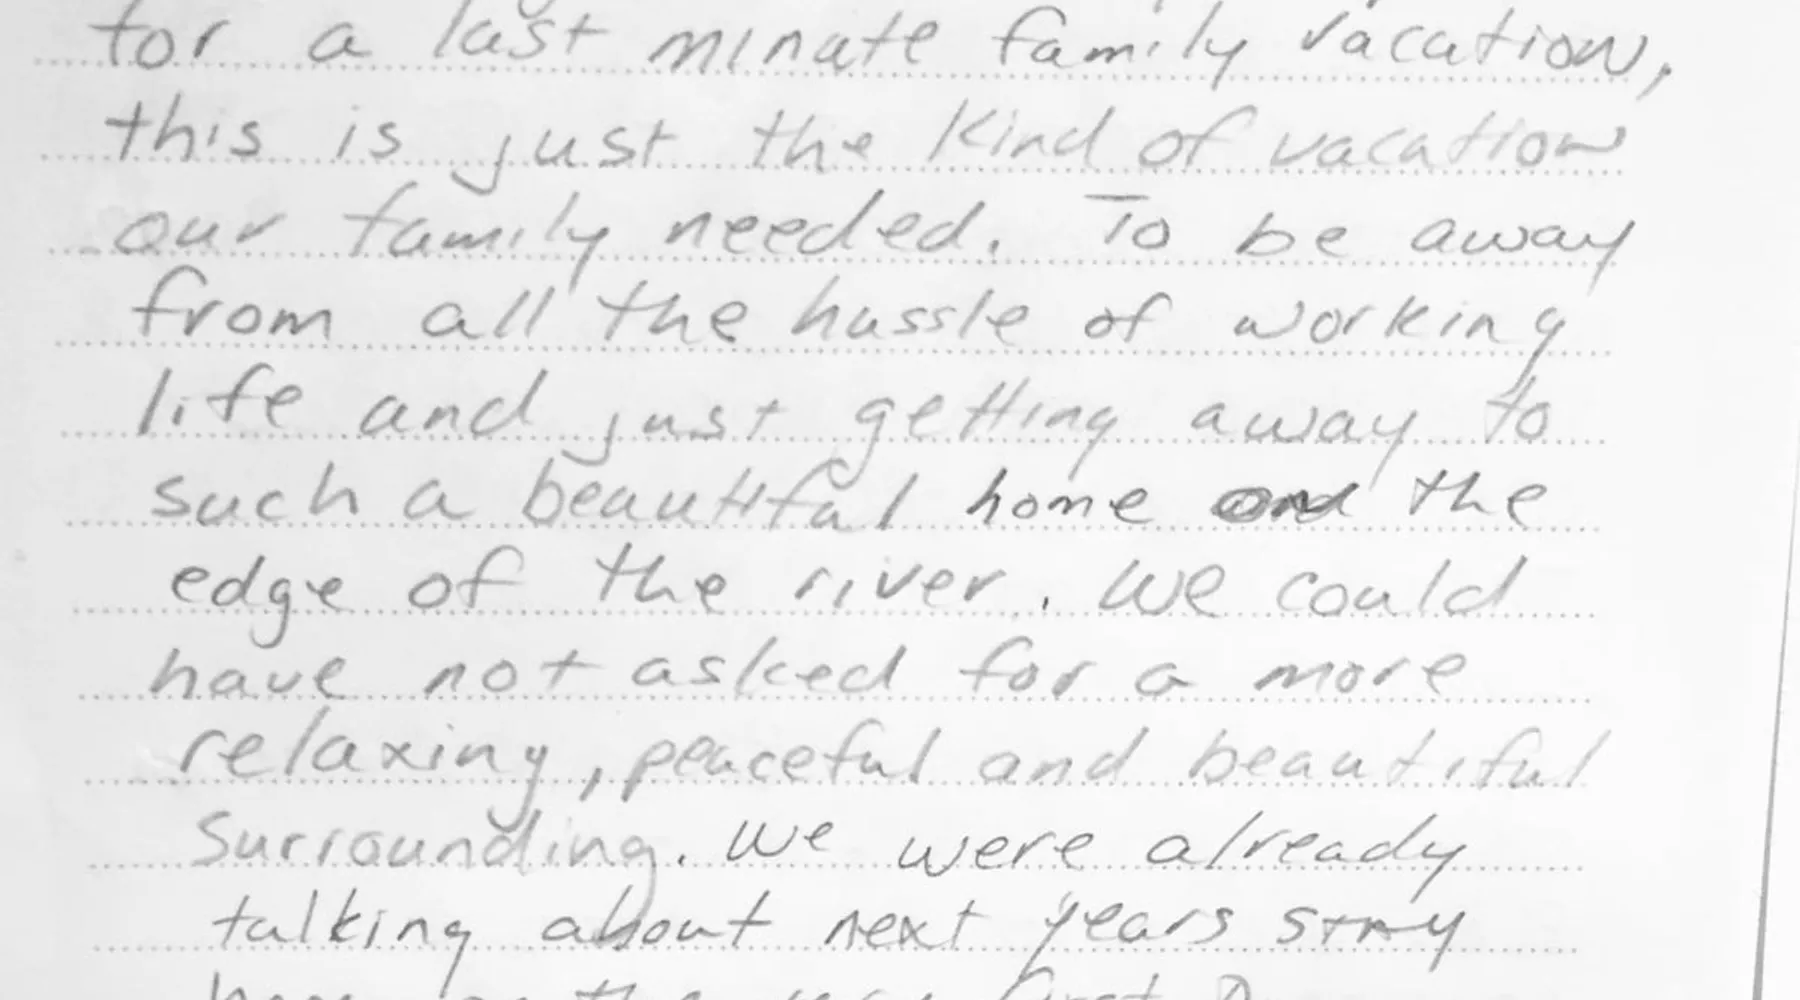 for a last minute family vacation,
this is just the kind of vacation
our family needed. To be away
from all the hussle of working
life and just getting away to
such a beautiful home on the
edge of the river. We could
have not asked for a more
relaxing, peaceful and beautiful
surrounding. We were already
talking about next years stay
the first